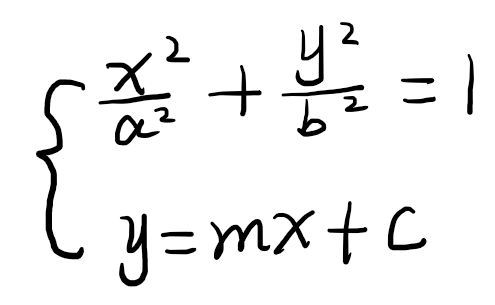 x²/a² + y²/b² = 1
y = mx + c